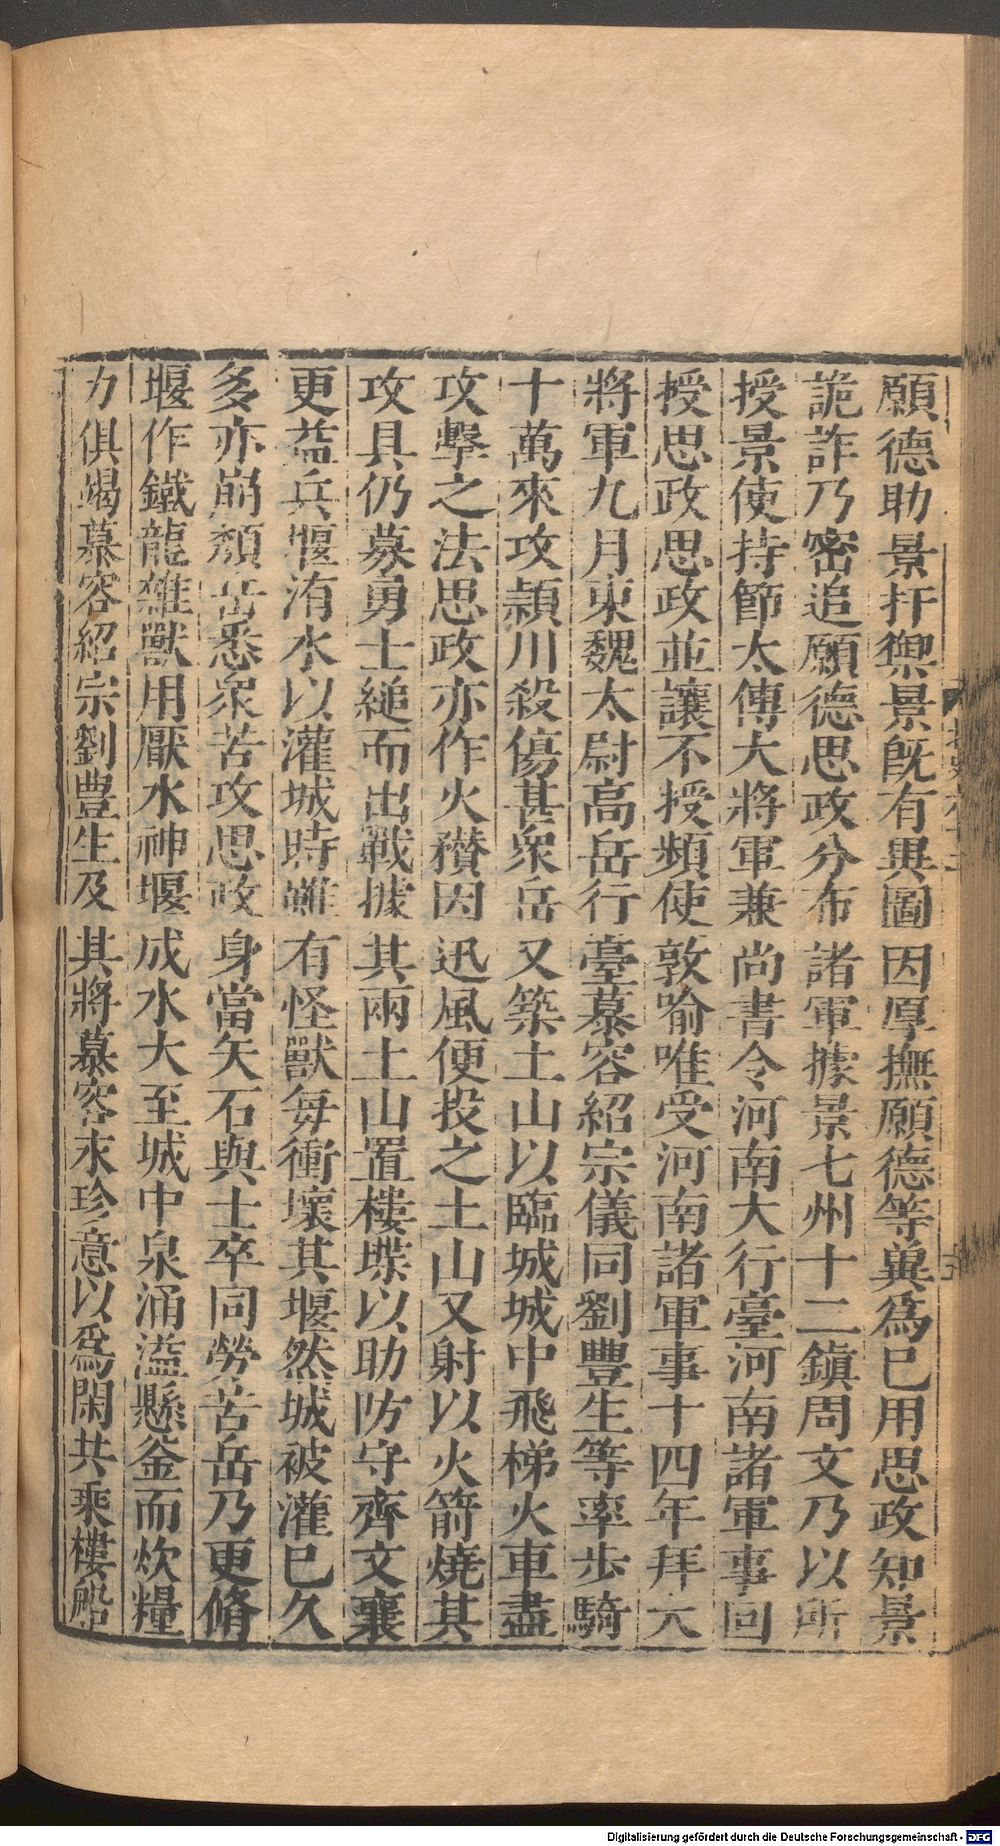 願德助景扞禦景既有異圖因厚撫願德等冀爲己用思政知景
詭詐乃密追願德思政分布諸軍據景七州十二鎮周文乃以所
授景使持節太傅大將軍兼尚書令河南大行臺河南諸軍事回
授思政思政並讓不授頻使敦喻唯受河南諸軍事十四年拜大
將軍九月東魏太尉高岳行臺慕容紹宗儀同劉豐生等率步騎
十萬來攻潁川殺傷甚衆岳又築土山以臨城城中飛梯火車盡
攻擊之法思政亦作火䂎因迅風便投之土山又射以火箭燒其
攻具仍募勇士縋而出戰據其兩土山置樓堞以助防守齊文襄
更益兵堰洧水以灌城時雖有怪獸每衝壞其堰然城被灌已久
多亦崩頽岳悉衆苦攻思政身當矢石與士卒同勞苦岳乃更脩
堰作鐵龍雜獸用厭水神堰成水大至城中泉涌溢懸釜而炊糧
力俱竭慕容紹宗劉豊生及其將慕容永珍意以爲閑共乘樓船
Digitalisierung gefördert durch die Deutsche Forschungsgemeinschaft - DFG